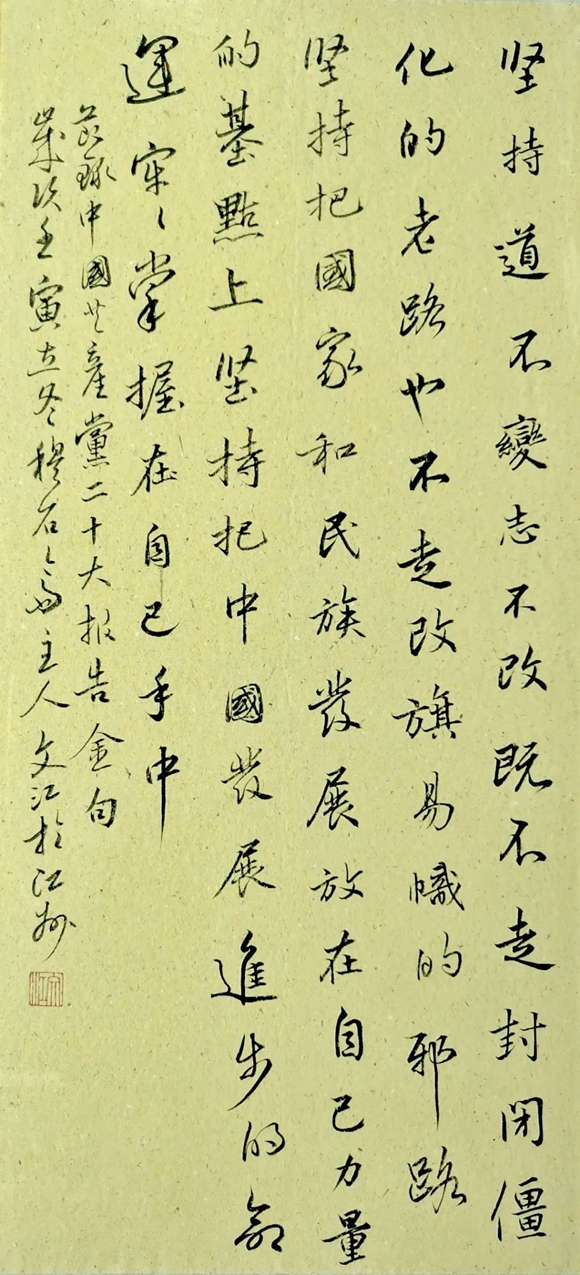 坚持道不變志不改既不走封閉僵
化的老路也不走改旗易幟的邪路
坚持把國家和民族發展放在自己力量
的基點上坚持把中國發展進步的命
運牢牢掌握在自己手中
兹録中國共產黨二十大报告金句
歲次壬寅立冬穆石斋主人文江於江州